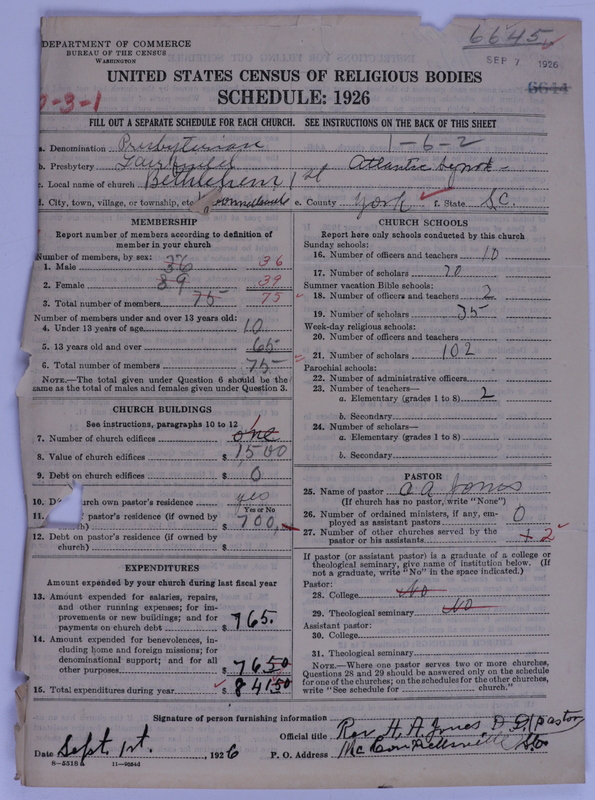 DEPARTMENT OF COMMERCE
BUREAU OF THE CENSUS
WASHINGTON
6645
SEP 7 1926
6644
UNITED STATES CENSUS OF RELIGIOUS BODIES
SCHEDULE: 1926
-3-1
FILL OUT A SEPARATE SCHEDULE FOR EACH CHURCH. SEE INSTRUCTIONS ON THE BACK OF THIS SHEET
a. Denomination Presbyterian 1-6-2
b. Presbytery Fairfield Atlantic Synod
c. Local name of church Bethlehem 1st
d. City, town, village, or township, etc. e. County York f. State S.C.
MEMBERSHIP
Report number of members according to definition of
member in your church
Number of members, by sex:
1. Male 36 36
2. Female 39 39
3. Total number of members 75 75
Number of members under and over 13 years old:
4. Under 13 years of age 10
5. 13 years old and over 65
6. Total number of members 75
NOTE.—The total given under Question 6 should be the
same as the total of males and females given under Question 3.
CHURCH BUILDINGS
See instructions, paragraphs 10 to 12
7. Number of church edifices one 1
8. Value of church edifices $ 1500
9. Debt on church edifices $ 0
10. D church own pastor's residence yes
Yes or No
11. pastor's residence (if owned by
church) $ 700
12. Debt on pastor's residence (if owned by
church) $
EXPENDITURES
Amount expended by your church during last fiscal year
13. Amount expended for salaries, repairs,
and other running expenses; for im-
provements or new buildings; and for
payments on church debt $ 765.
14. Amount expended for benevolences, in-
cluding home and foreign missions; for
denominational support; and for all
other purposes $ 7650
15. Total expenditures during year $ 84150
CHURCH SCHOOLS
Report here only schools conducted by this church
Sunday schools:
16. Number of officers and teachers 10
17. Number of scholars 70
Summer vacation Bible schools:
18. Number of officers and teachers 2
19. Number of scholars 35
Week-day religious schools:
20. Number of officers and teachers
21. Number of scholars 102
Parochial schools:
22. Number of administrative officers
23. Number of teachers—
a. Elementary (grades 1 to 8) 2
b. Secondary
24. Number of scholars—
a. Elementary (grades 1 to 8)
b. Secondary
PASTOR
25. Name of pastor Jones
(If church has no pastor, write "None")
26. Number of ordained ministers, if any, em-
ployed as assistant pastors 0
27. Number of other churches served by the
pastor or his assistants + 2
If pastor (or assistant pastor) is a graduate of a college or
theological seminary, give name of institution below. (If
not a graduate, write "No" in the space indicated.)
Pastor:
28. College No
29. Theological seminary No
Assistant pastor:
30. College
31. Theological seminary
NOTE.—Where one pastor serves two or more churches,
Questions 28 and 29 should be answered only on the schedule
for one of the churches; on the schedules for the other churches,
write "See schedule for church."
Signature of person furnishing information
Official title Rev. H. A. Jones D.D. pastor
Date Sept. 1st. , 1926 P. O. Address McConnellsville S.C.
8-5518 11-9054d